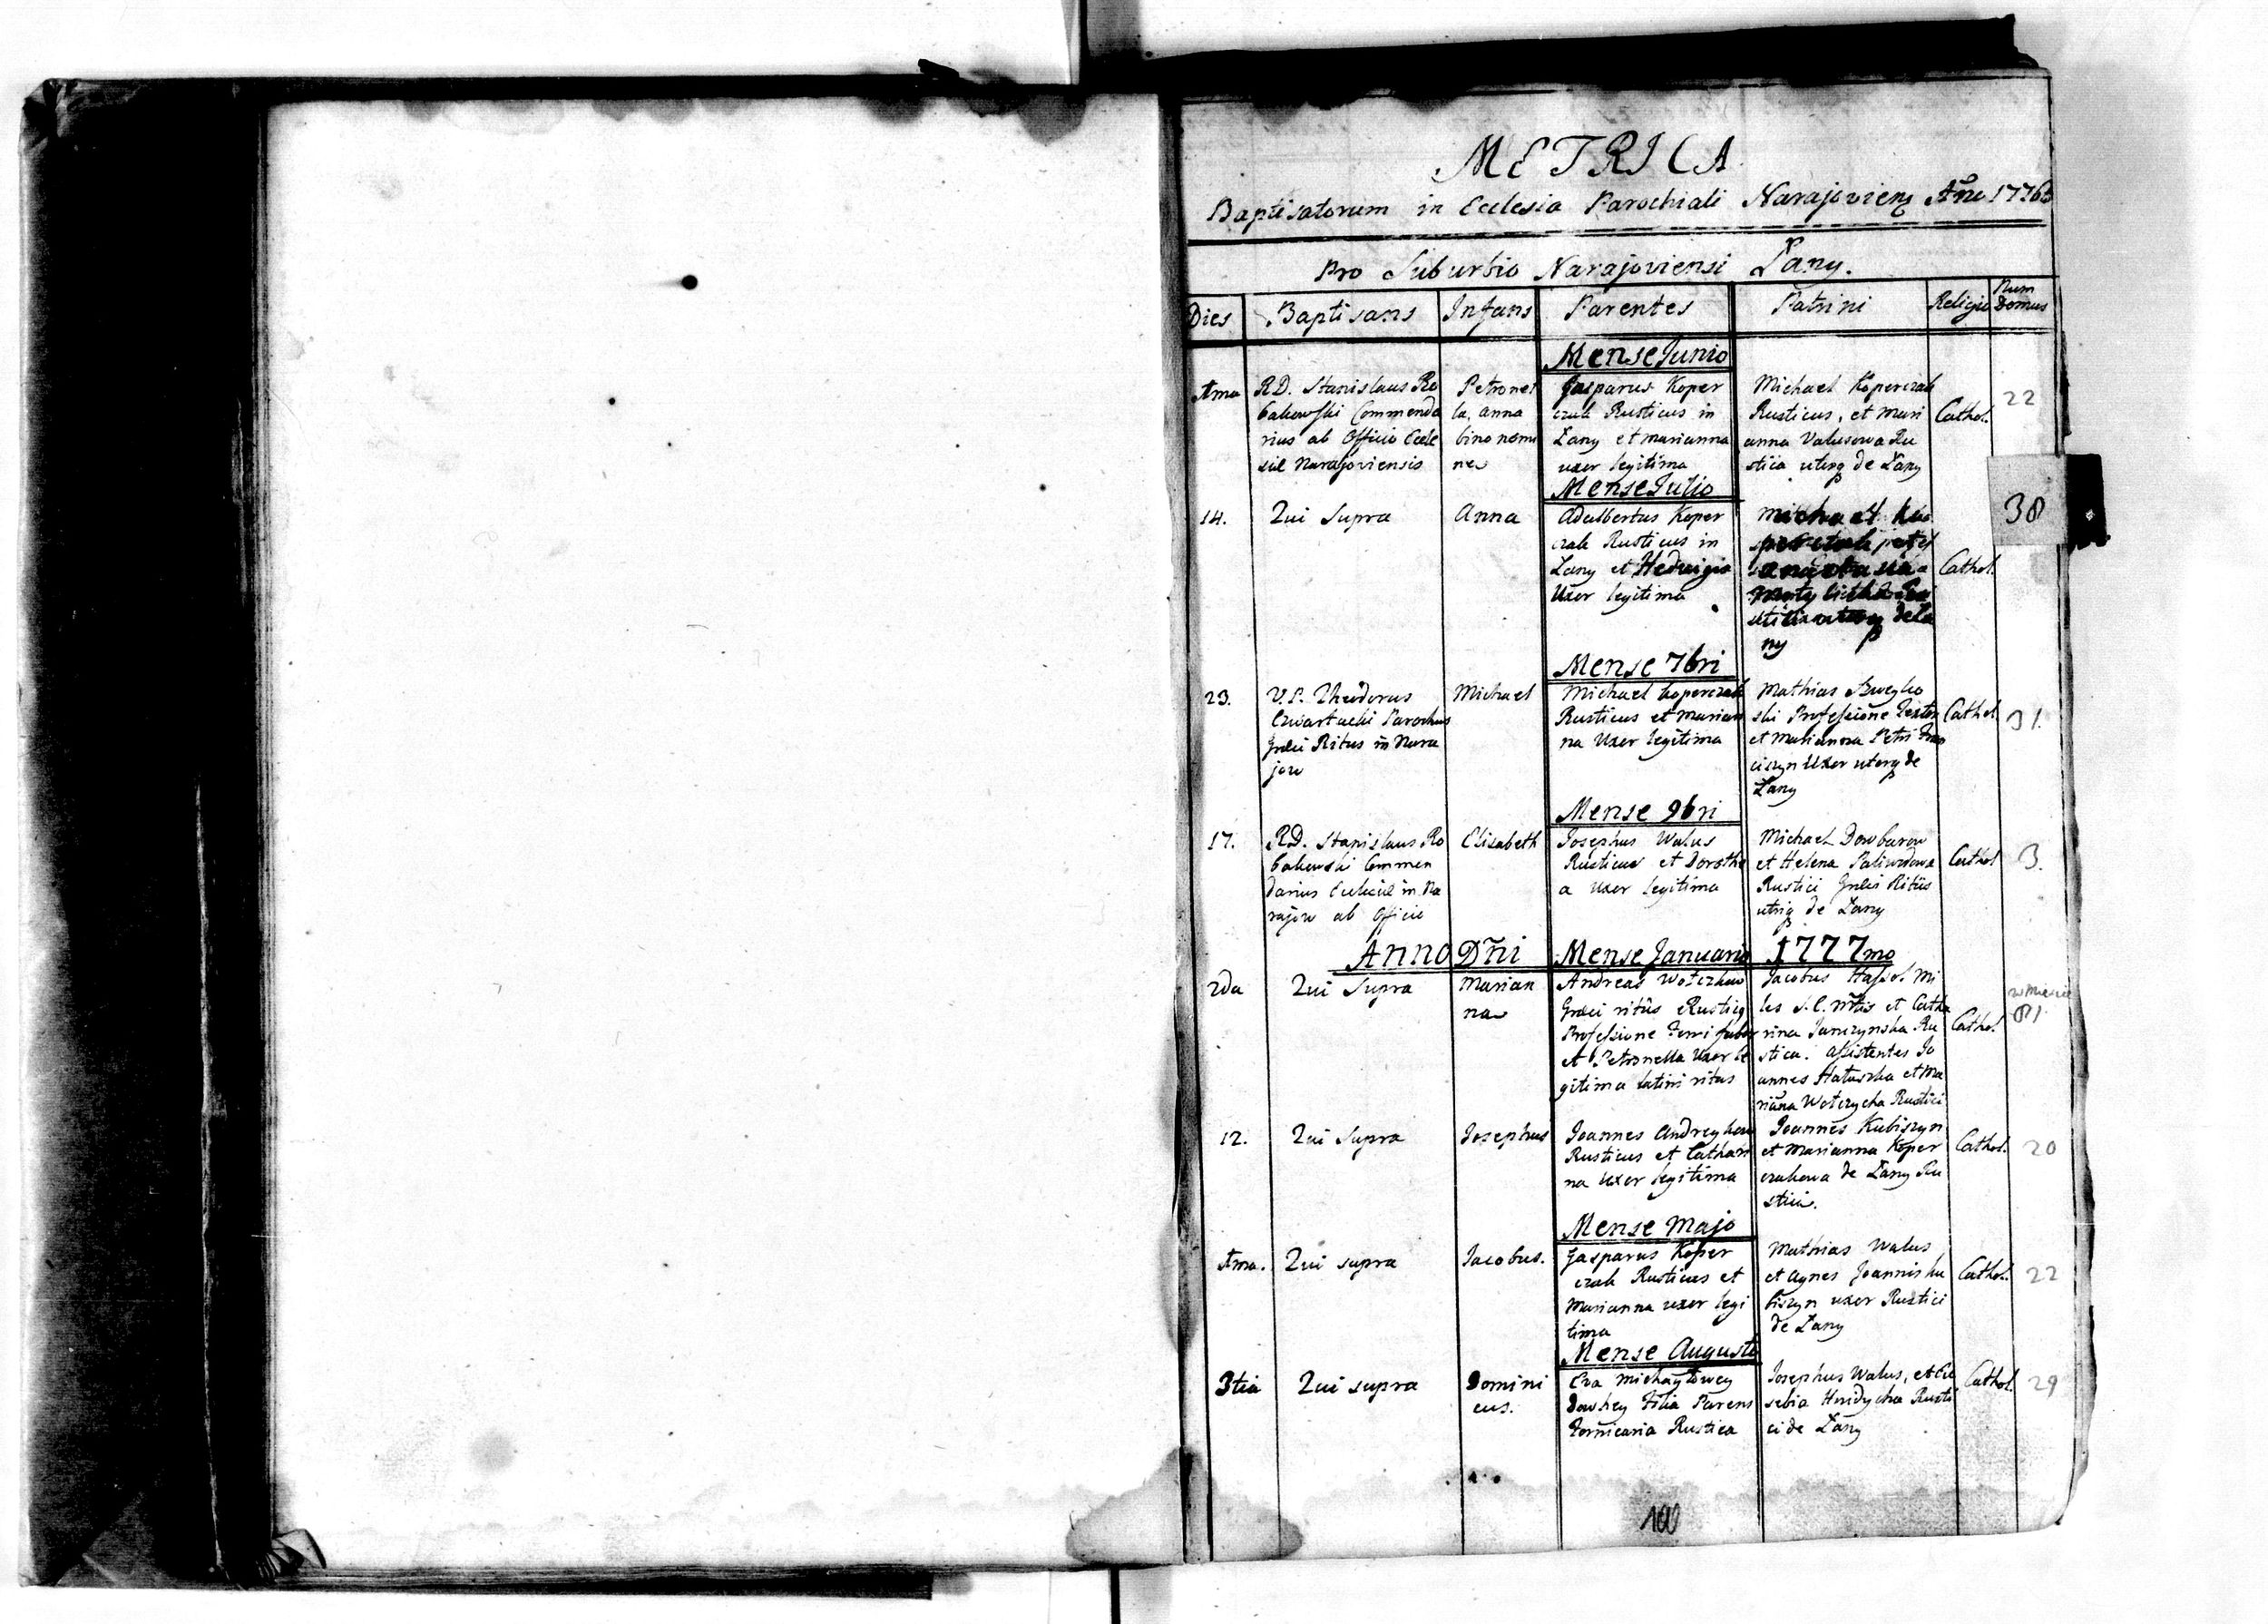 METRICA
Baptisatorum in Ecclesia Parochiali Narajovien Año 1776to
Pro Suburbio Narajoviensi Łany.
Dies Baptisans Infans Parentes Patrini Religio Num Domus
Mense Junio
1ma
R.D. Stanislaus Ro
bakowski Commenda
rius ab Officio Eccle
siæ Narajoviensis
Petronel
la, Anna
bino nomi
ne
Gasparus Koper
czak Rusticus in
Łany et Marianna
uxor legitima
Michael Koperczak
Rusticus, et Mari
anna Walusowa Ru
stica utrq de Łany
Cathol.
22
Mense Julio
14.
Qui Supra
Anna
Adalbertus Koper
czak Rusticus in
Łany et Hedvigis
Uxor legitima
Michael
de Ła
ny
Cathol.
38
Mense 7bri
23.
V.P. Theodorus
Czwartacki Parochus
Græci Ritus in Nara
jow
Michael
Michael Koperczak
Rusticus et Marian
na Uxor legitima
Mathias
ski Professione Textor
et Marianna Petri
Uxor uterq de
Łany
Cathol.
31.
Mense 9bri
17.
R.D. Stanislaus Ro
bakowski Commen
darius Ecclesiæ in Na
rajow ab Officio
Elisabeth
Josephus Walus
Rusticus et Dorothe
a uxor legitima
Michael Dowbarow
et Helena Paliwodowa
Rustici Græci Ritûs
utriq de Łany
Cathol
3.
Anno Dñi Mense Januario 1777mo
2da
Qui Supra
Marian
na
Andreas Wołczkow
Græci ritûs Rusticq
Professione Ferri faber
et Petronella Uxor le
gitima latini ritus
Jacobus Mi
les S.C. Mtis et Catha
rina Janczynska Ru
stica. Assistentes Jo
annes Hałuszka et Ma
rianna Wołczycha Rustici
Cathol.
w Miescie
81
12.
Qui Supra
Josephus
Joannes Andreyków
Rusticus et Cathari
na Uxor legitima
Joannes Kubiszyn
et Marianna Koper
czakowa de Łany Ru
stici.
Cathol.
20
Mense Majo
1ma.
Qui supra
Jacobus.
Gasparus Koper
czak Rusticus et
Marianna uxor legi
tima
Mathias Walus
et Agnes Joannis Ku
biszyn uxor Rustici
de Łany
Cathol.
22
Mense Augusto
3tia
Qui supra
Domini
cus.
Eva Michayłowey
Dowhey Filia Parens
Fornicaria Rustica
Josephus Walus, et Eu
sebia Hnidycha Rusti
ci de Łany
Cathol.
29
100